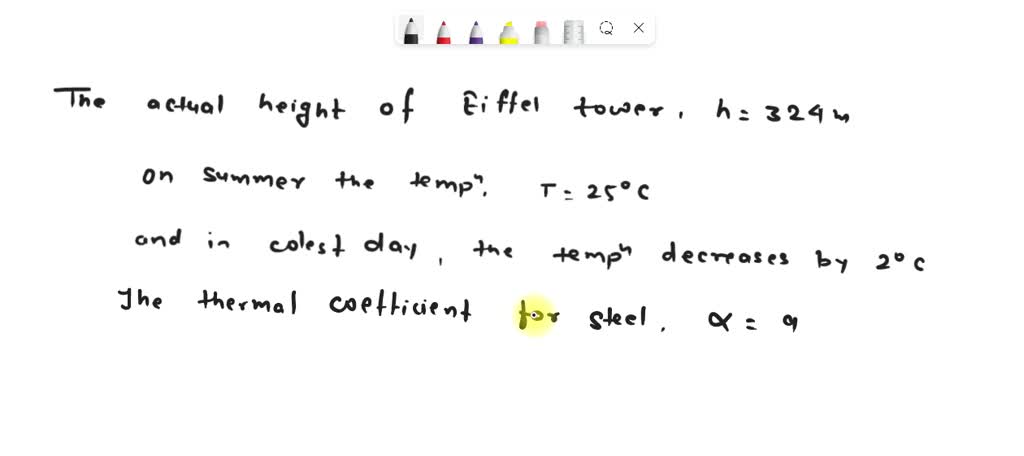 The actual height of Eiffel tower, h = 324 m
on summer the tempⁿ. T = 25°C
and in colest day, the tempⁿ decreases by 2°C
The thermal coefficient for steel, α = 9